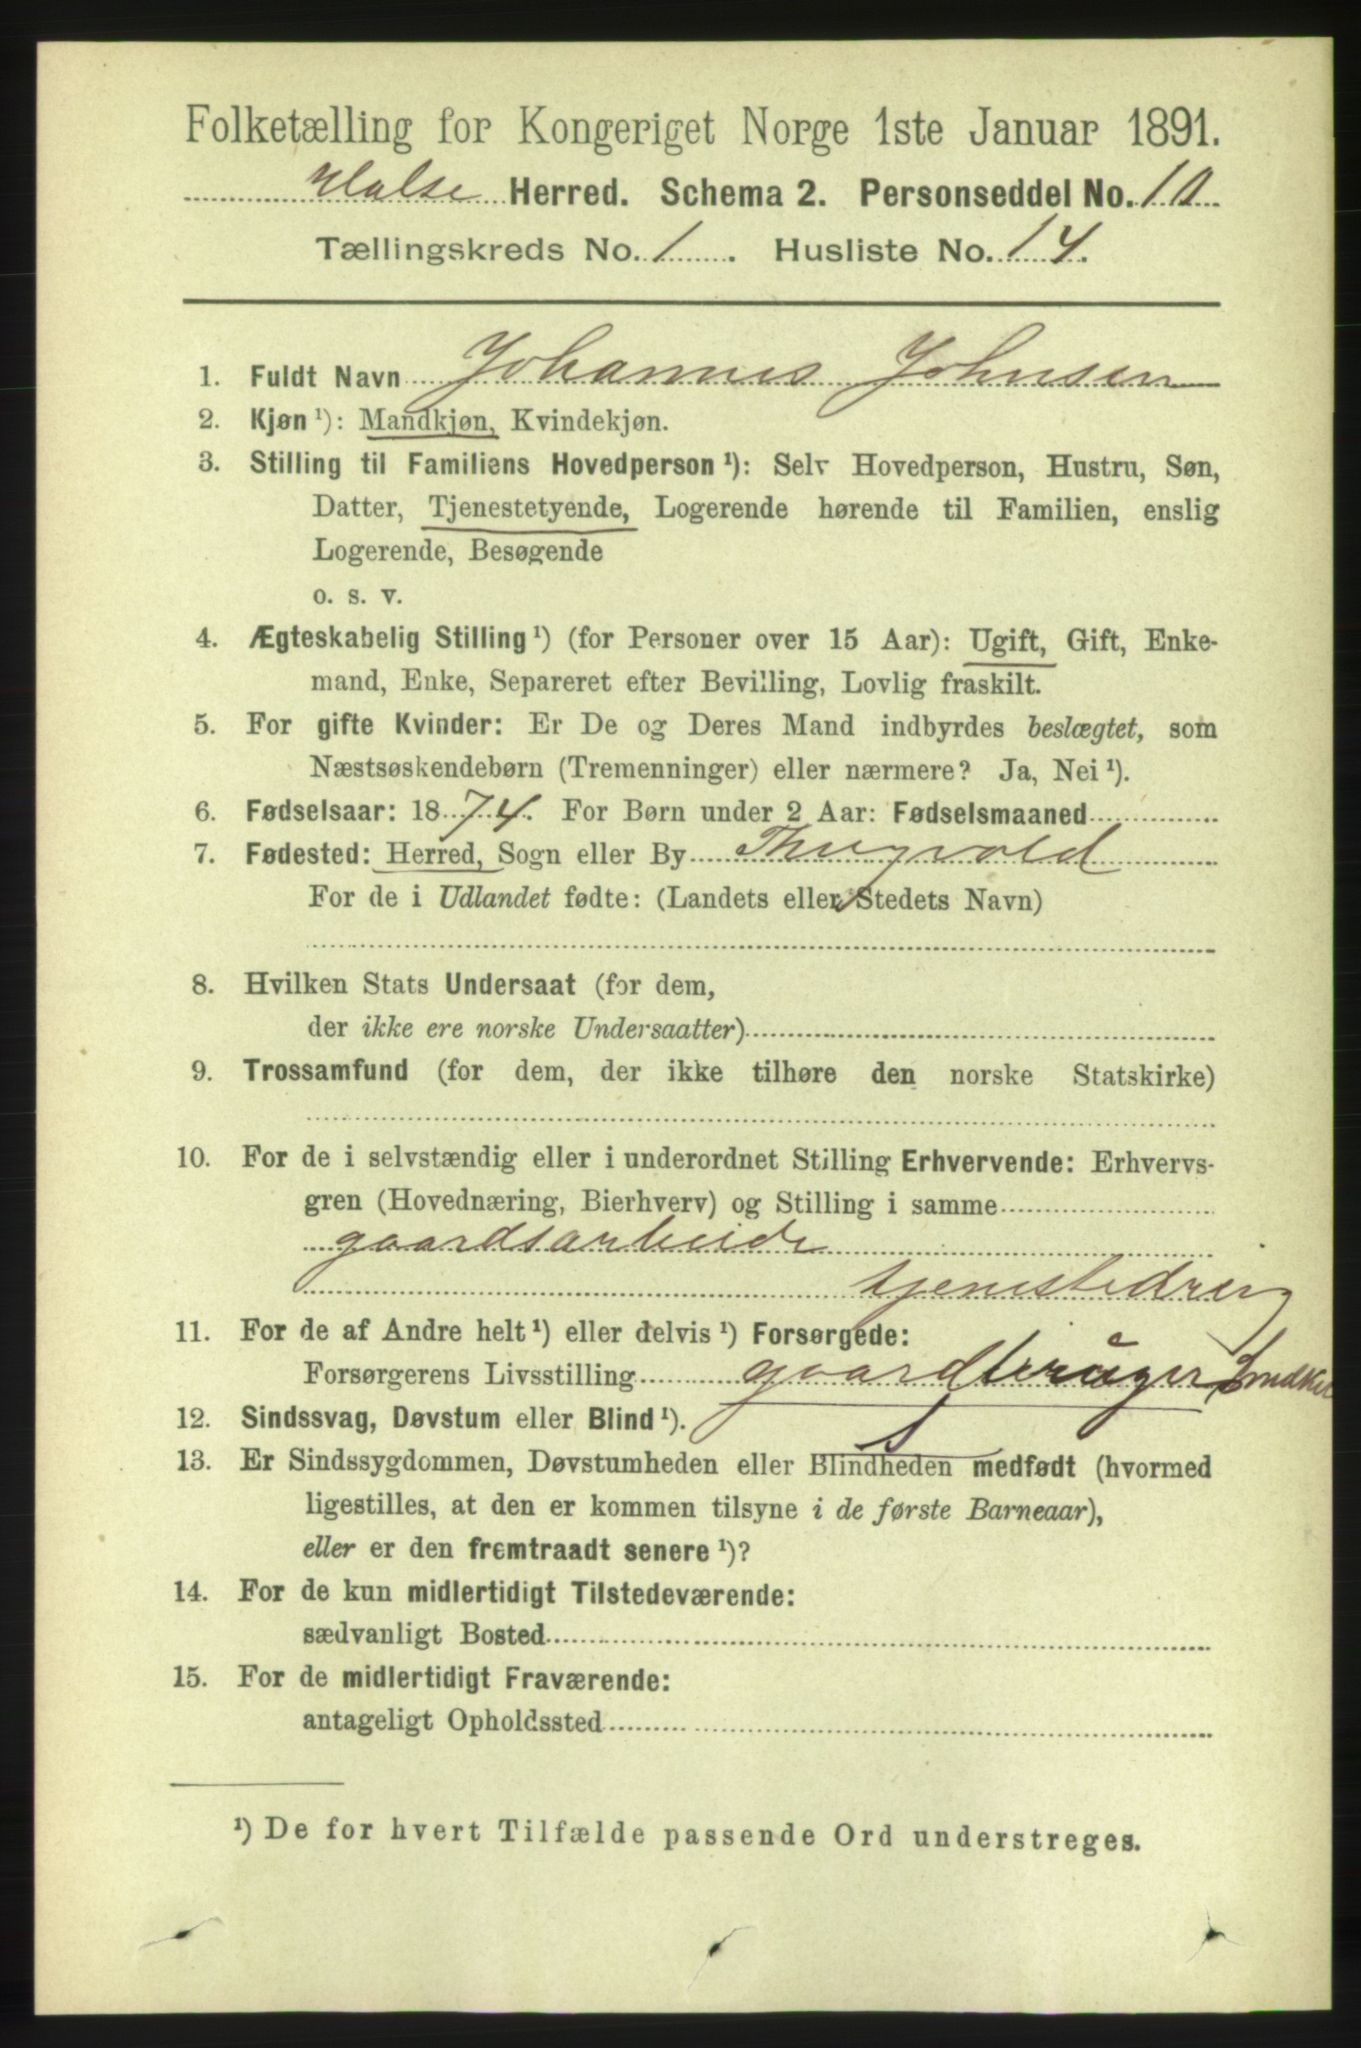 Folketælling for Kongeriget Norge 1ste Januar 1891.
Halse Herred. Schema 2. Personseddel No. 10
Tællingskreds No. 1. Husliste No. 14.
1. Fuldt Navn Johannes Johnsen
2. Kjøn ¹): Mandkjøn, Kvindekjøn.
3. Stilling til Familiens Hovedperson ¹): Selv Hovedperson, Hustru, Søn,
Datter, Tjenestetyende, Logerende hørende til Familien, enslig
Logerende, Besøgende
o. s. v.
4. Ægteskabelig Stilling ¹) (for Personer over 15 Aar): Ugift, Gift, Enke-
mand, Enke, Separeret efter Bevilling, Lovlig fraskilt.
5. For gifte Kvinder: Er De og Deres Mand indbyrdes beslægtet, som
Næstsøskendebørn (Tremenninger) eller nærmere? Ja, Nei ¹).
6. Fødselsaar: 1874. For Børn under 2 Aar: Fødselsmaaned
7. Fødested: Herred, Sogn eller By Thingvold
For de i Udlandet fødte: (Landets eller Stedets Navn)
8. Hvilken Stats Undersaat (for dem,
der ikke ere norske Undersaatter)
9. Trossamfund (for dem, der ikke tilhøre den norske Statskirke)
10. For de i selvstændig eller i underordnet Stilling Erhvervende: Erhvervs-
gren (Hovednæring, Bierhverv) og Stilling i samme
gaardsarbeide
tjenestedreng
11. For de af Andre helt ¹) eller delvis ¹) Forsørgede:
Forsørgerens Livsstilling gaardbruger
12. Sindssvag, Døvstum eller Blind ¹).
13. Er Sindssygdommen, Døvstumheden eller Blindheden medfødt (hvormed
ligestilles, at den er kommen tilsyne i de første Barneaar),
eller er den fremtraadt senere ¹)?
14. For de kun midlertidigt Tilstedeværende:
sædvanligt Bosted
15. For de midlertidigt Fraværende:
antageligt Opholdssted
¹) De for hvert Tilfælde passende Ord understreges.